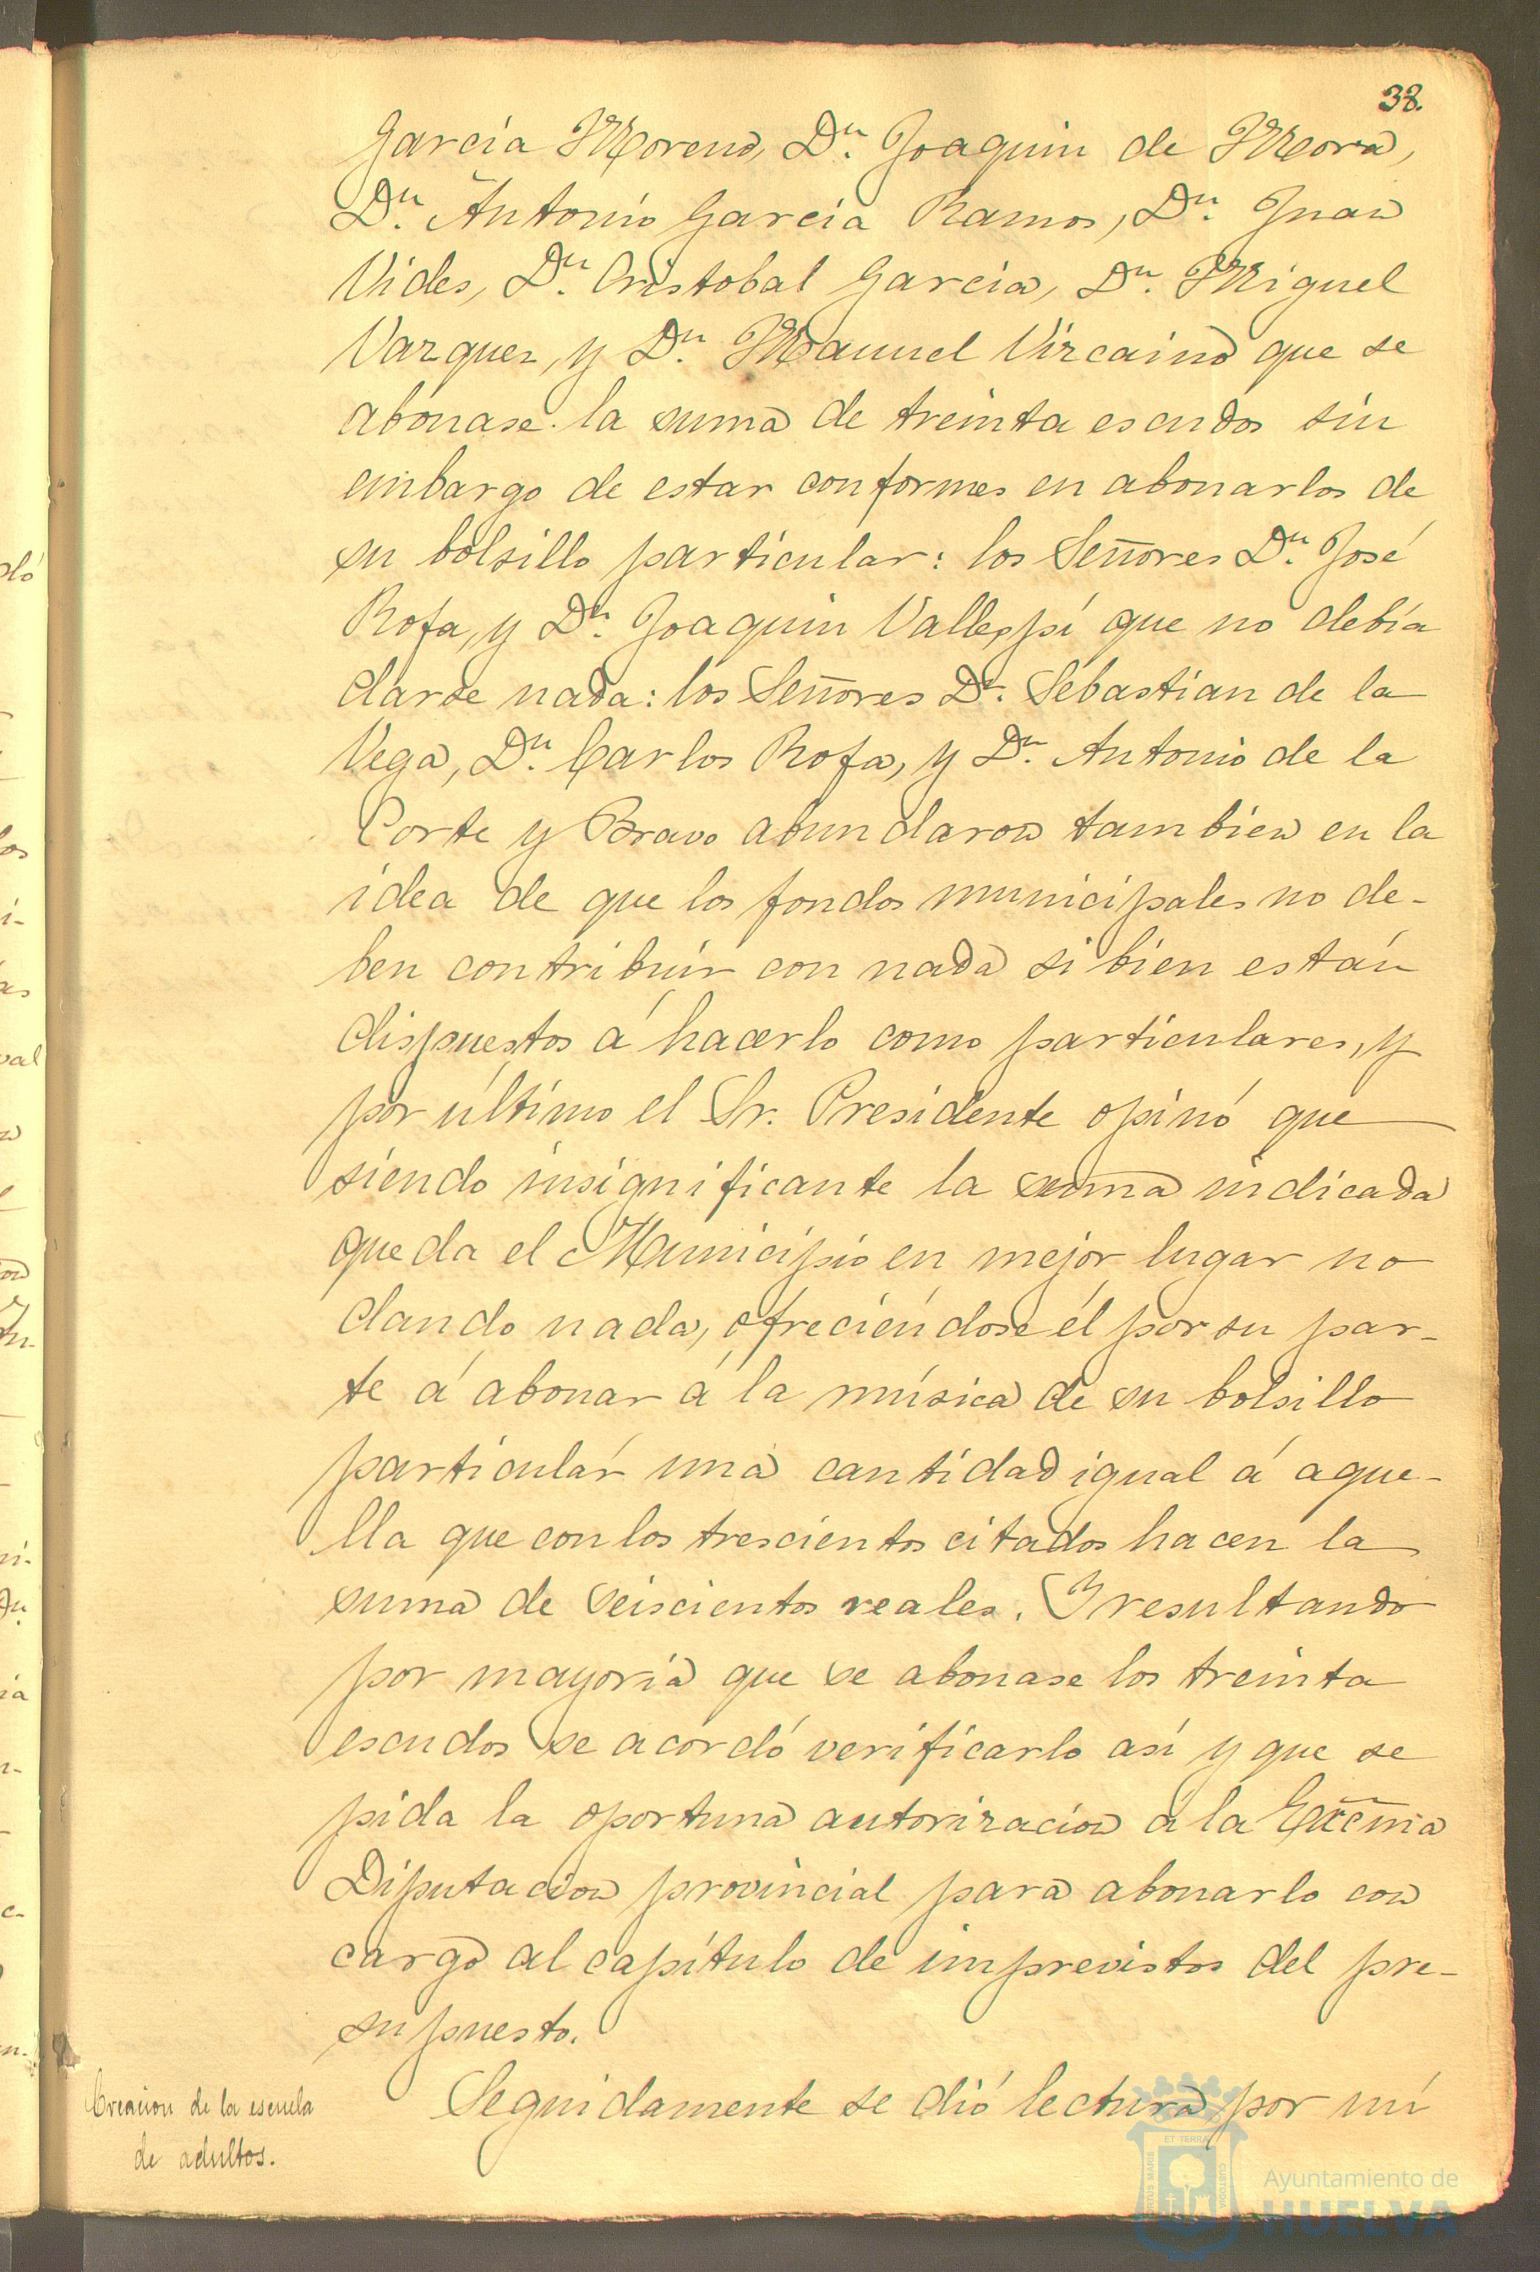 38.
García Moreno, Dn. Joaquin de Mora,
Dn. Antonio Garcia Ramos, Dn. Juan
Vides, Dn. Cristobal Garcia, Dn. Miguel
Vazquez, y Dn. Manuel Vizcaino que se
abonase la suma de treinta escudos sin
embargo de estar conformes en abonarlos de
su bolsillo particular: los Señores Dn. José
Rofa, y Dn. Joaquin Vallespí que no debía
darse nada: los Señores Dn. Sebastian de la
Vega, Dn. Carlos Rofa, y Dn. Antonio de la
Corte y Bravo abundaron tambien en la
idea de que los fondos municipales no de-
ben contribuir con nada si bien están
dispuestos á hacerlo como particulares, y
por último el Sr. Presidente opinó que
siendo insignificante la suma indicada
queda el Municipio en mejor lugar no
dando nada, ofreciéndose él por su par-
te á abonar á la música de su bolsillo
particular una cantidad igual á aque-
lla que con los trescientos citados hacen la
suma de seiscientos reales. Y resultando
por mayoría que se abonase los treinta
escudos se acordó verificarlo así y que se
pida la oportuna autorizacion á la Excma
Diputacion provincial para abonarlo con
cargo al capítulo de imprevistos del pre-
supuesto.
Creacion de la escuela
de adultos.
Seguidamente se dió lectura por mí
ET TERRÆ
PORTUS MARIS
CUSTODIA
Ayuntamiento de
HUELVA